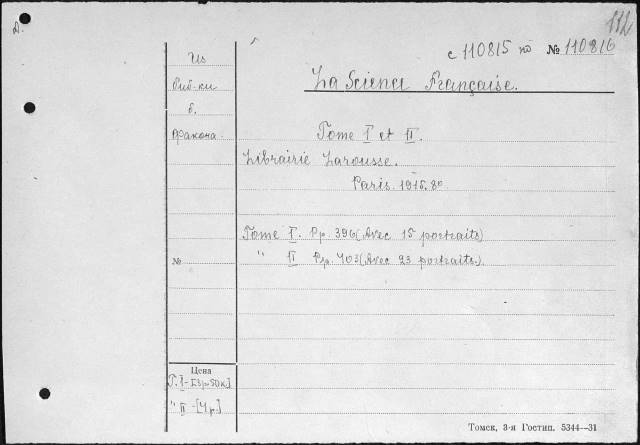 112
Д.
с 110815 по № 110816
Из
Биб-ки
б.
Факона.
La Science Française.
Tome I et II.
Librairie Larousse.
Paris. 1915. 8º
Tome I. Pp. 396 (Avec 15 portraits)
" II Pp. 403 (Avec 23 portraits.)
№
Цена
T. I - [3 р. 50 к.]
" II - [4 р.]
Томск, 3-я Гостип. 5344—31